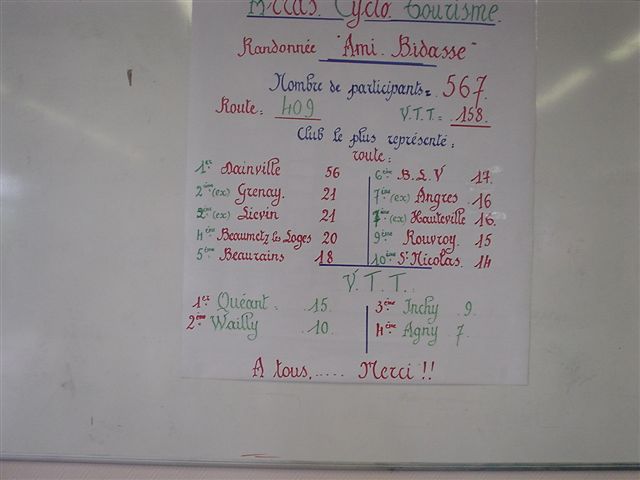 Arras Cyclo tourisme.
Randonnée "Ami Bidasse"
Nombre de participants = 567.
Route: 409 V.T.T = 158.
Club le plus représenté:
route:
1er Dainville 56
2ème (ex) Grenay. 21
2ème (ex) Lievin 21
4ème Beaumetz les Loges 20
5ème Beaurains 18
6ème B.L.V 17.
7ème (ex) Angres 16
7ème (ex) Hauteville 16.
9ème Rouvroy. 15
10ème St Nicolas. 14
V.T.T.
1er Quéant. 15.
2ème Wailly 10.
3ème Inchy 9.
4ème Agny 7.
A tous,..... Merci !!